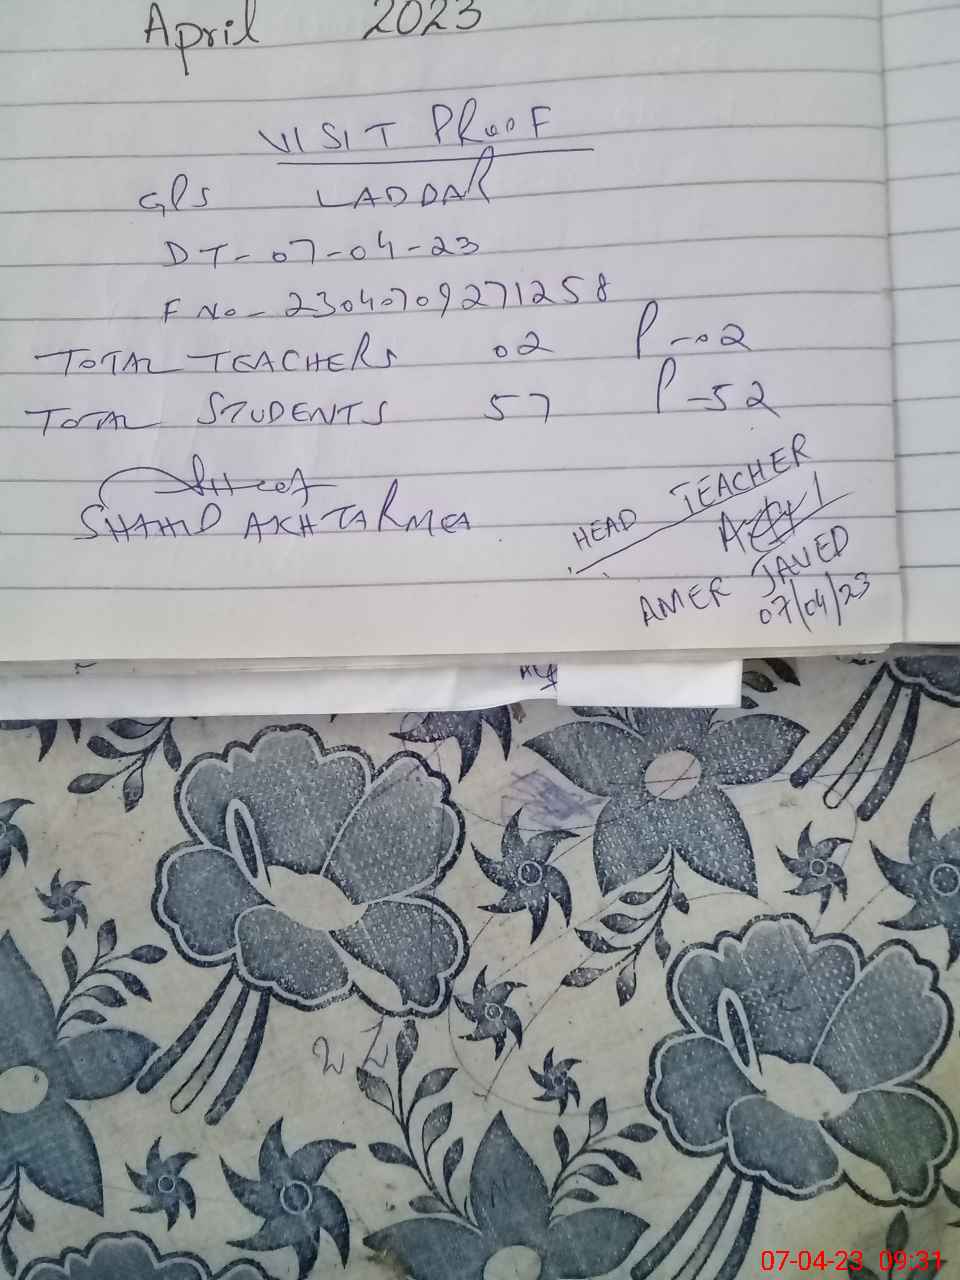 April 2023
VISIT PROOF
GPS LADDAR
DT-07-04-23
F No- 23040709271258
TOTAL TEACHERS 02 P-02
TOTAL STUDENTS 57 P-52
SHAHID AKHTAR MEA
HEAD TEACHER
AMER JAVED
07/04/23
07-04-23 09:31